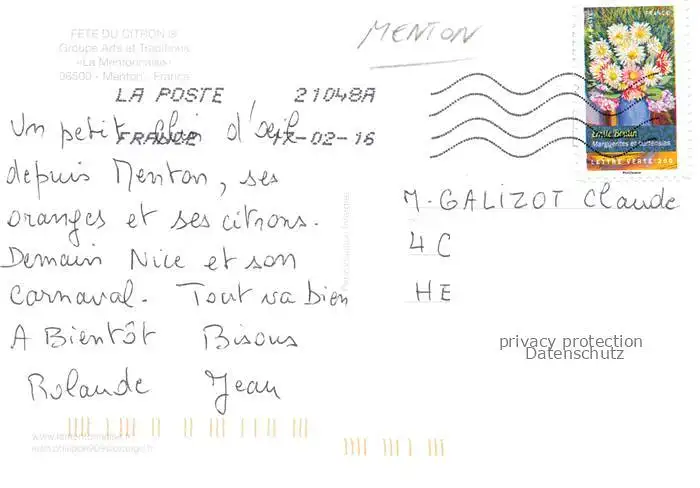 FETE DU CITRON ®
Groupe Arts et Traditions
«La Mentonnaise»
06500 - Menton - France
MENTON
LA POSTE 21048A
FRANCE 17-02-16
FRANCE
Emile Bruun
Marguerites et hortensias
LETTRE VERTE 20G
Un petit clin d'œil
depuis Menton, ses
oranges et ses citrons.
Demain Nice et son
Carnaval. Tout va bien
A Bientôt Bisous
Rolande Jean
M. GALIZOT Claude
4 C
HE
privacy protection
Datenschutz